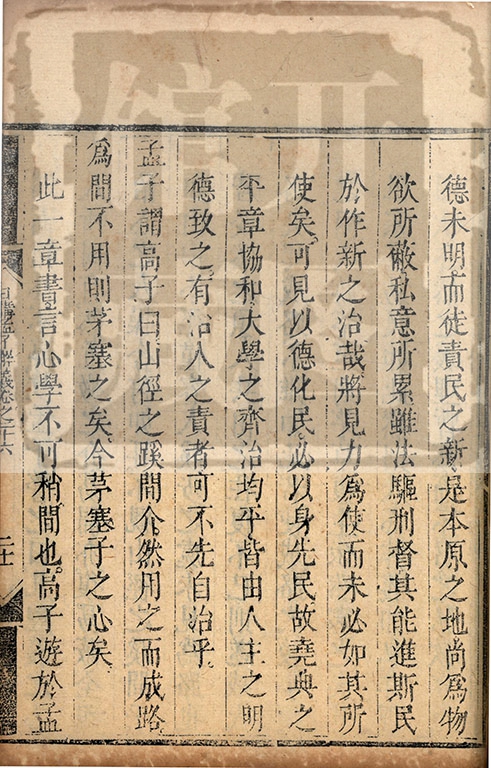 德未明而徒責民之新是本原之地尚爲物
欲所蔽私意所累雖法驅刑督其能進斯民
於作新之治哉將見力爲使而未必如其所
使矣可見以德化民必以身先民故堯典之
平章協和大學之齊治均平皆由人主之明
德致之有治人之責者可不先自治乎
孟子謂高子曰山徑之蹊間介然用之而成路
爲間不用則茅塞之矣今茅塞子之心矣
此一章書言心學不可稍間也高子遊於孟
日講孟子解義卷之二十六